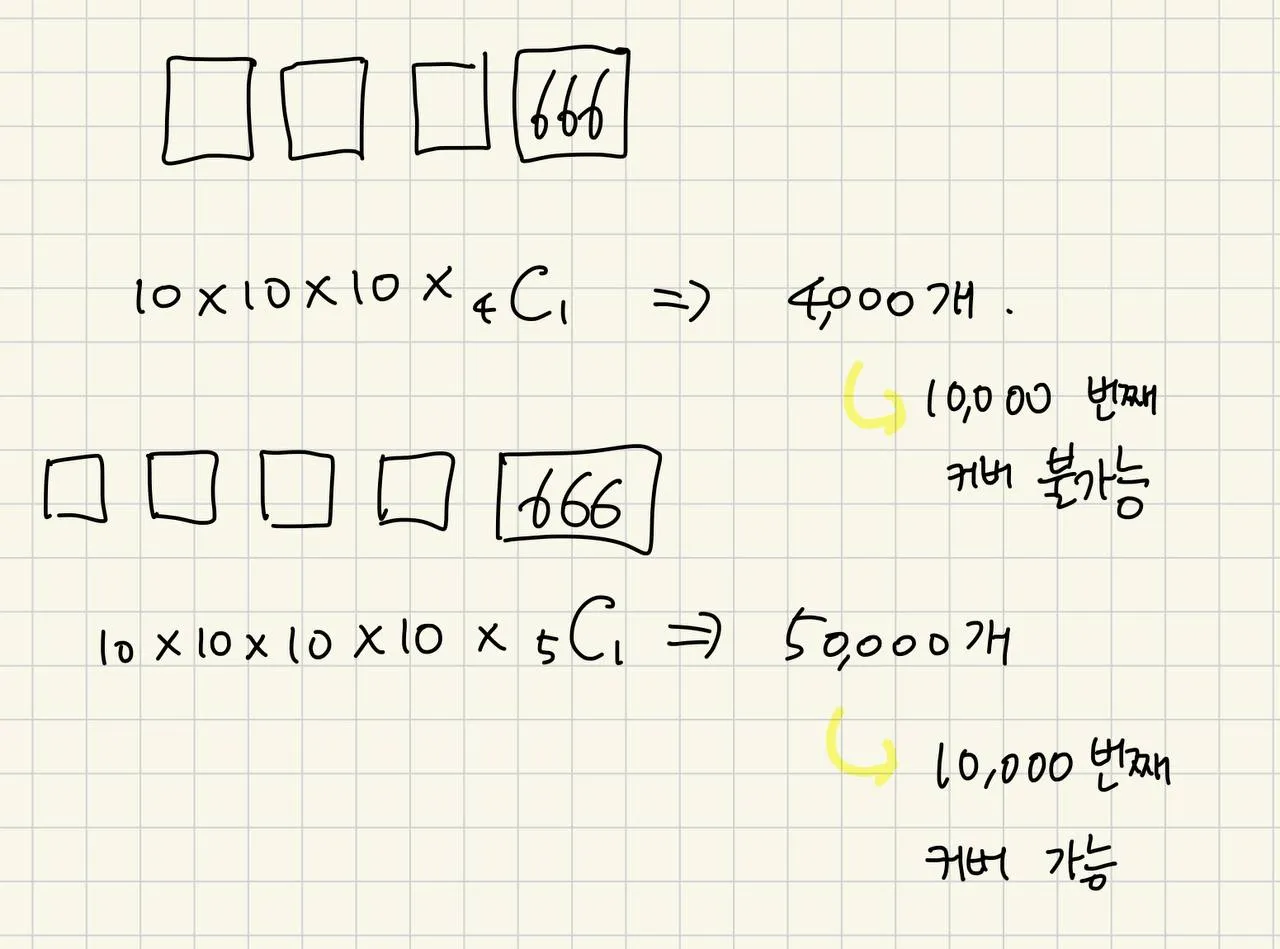 666
10 × 10 × 10 × ₄C₁ => 4,000개.
10,000 번째
커버 불가능
666
10 × 10 × 10 × 10 × ₅C₁ => 50,000개
10,000 번째
커버 가능